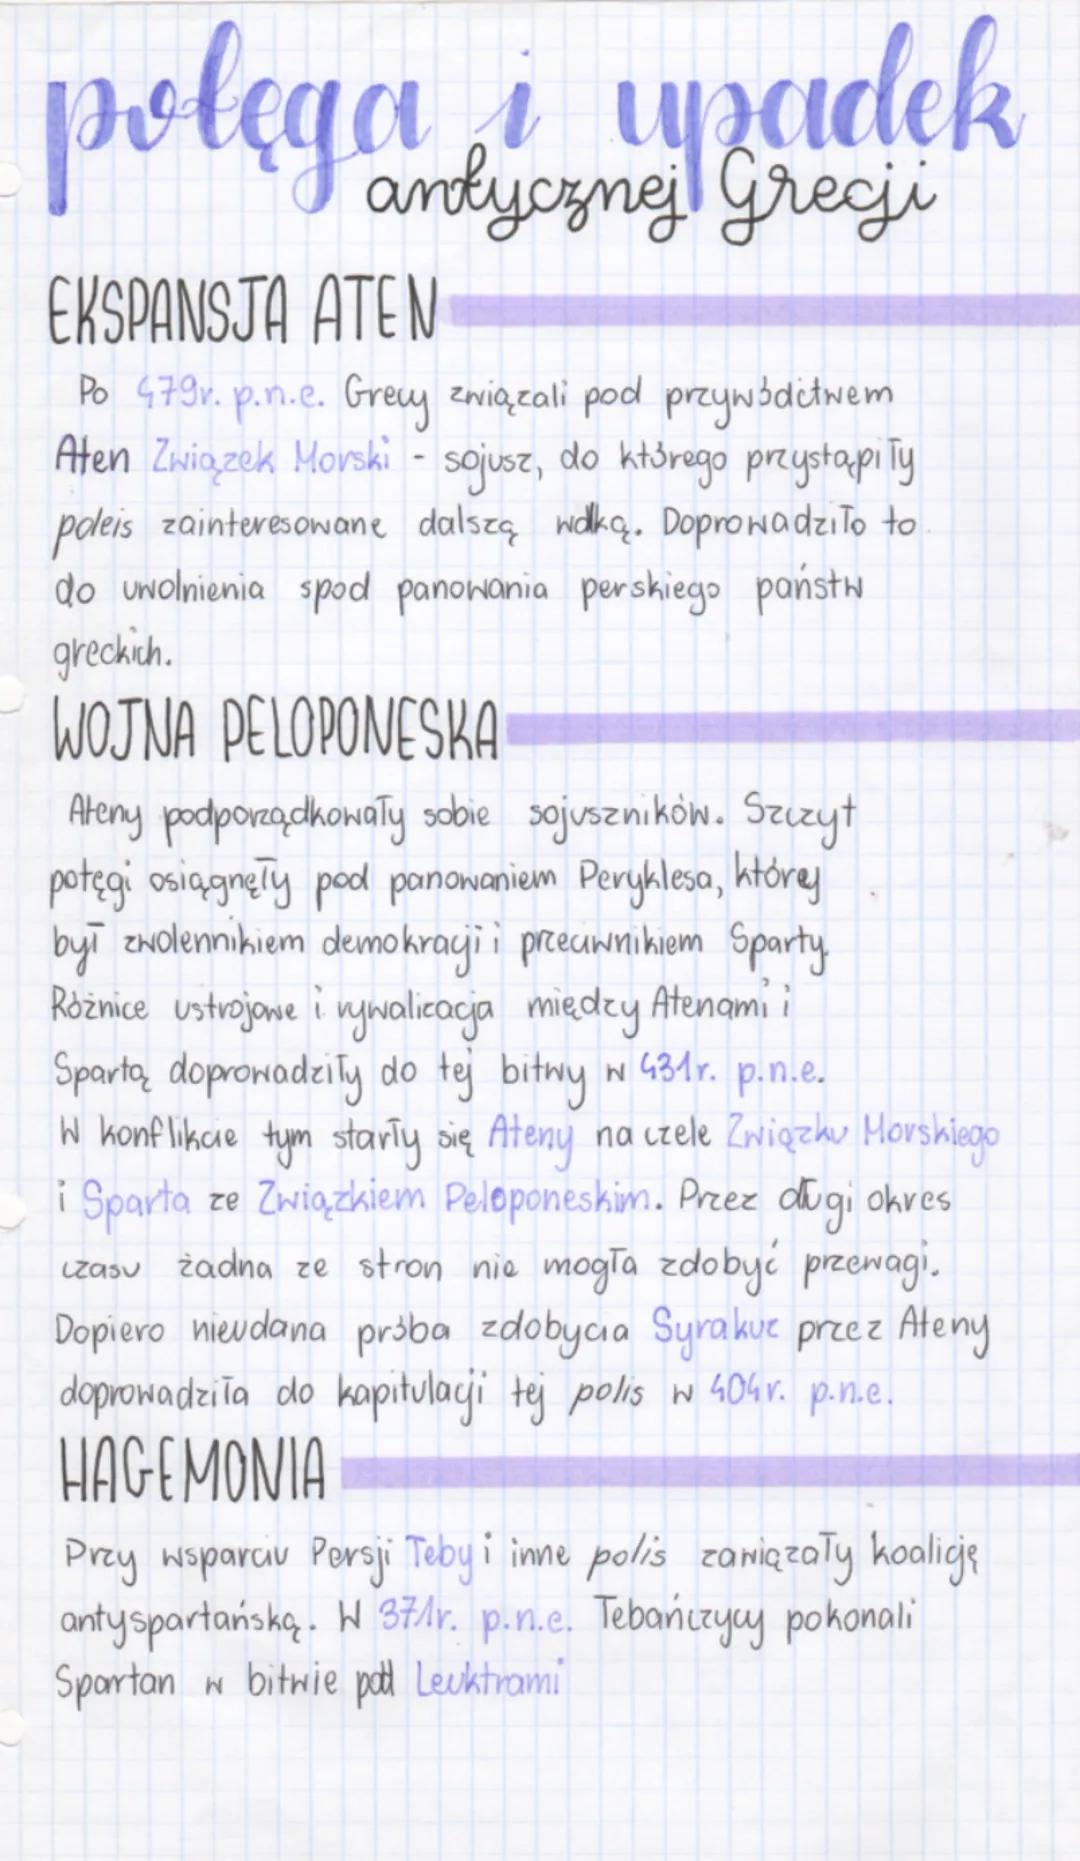 potęga i upadek
antycznej Grecji
EKSPANSJA ATEN
Po 479r. p.n.e. Grecy związali pod przywódctwem
Aten Związek Morski - sojusz, do którego przystąpiły
poleis zainteresowane dalszą walką. Doprowadziło to
do uwolnienia spod panowania perskiego państw
greckich.
WOJNA PELOPONESKA
Ateny podporządkowały sobie sojuszników. Szczyt
potęgi osiągnęły pod panowaniem Peryklesa, który
był zwolennikiem demokracji i przeciwnikiem Sparty.
Różnice ustrojowe i rywalizacja między Atenami i
Spartą doprowadziły do tej bitwy w 431r. p.n.e.
W konflikcie tym starły się Ateny na czele Związku Morskiego
i Sparta ze Związkiem Peloponeskim. Przez długi okres
czasu żadna ze stron nie mogła zdobyć przewagi.
Dopiero nieudana próba zdobycia Syrakuz przez Ateny
doprowadziła do kapitulacji tej polis w 404r. p.n.e.
HAGEMONIA
Przy wsparciu Persji Teby i inne polis zawiązały koalicję
antyspartańską. W 371r. p.n.e. Tebańczycy pokonali
Spartan w bitwie pod Leuktrami